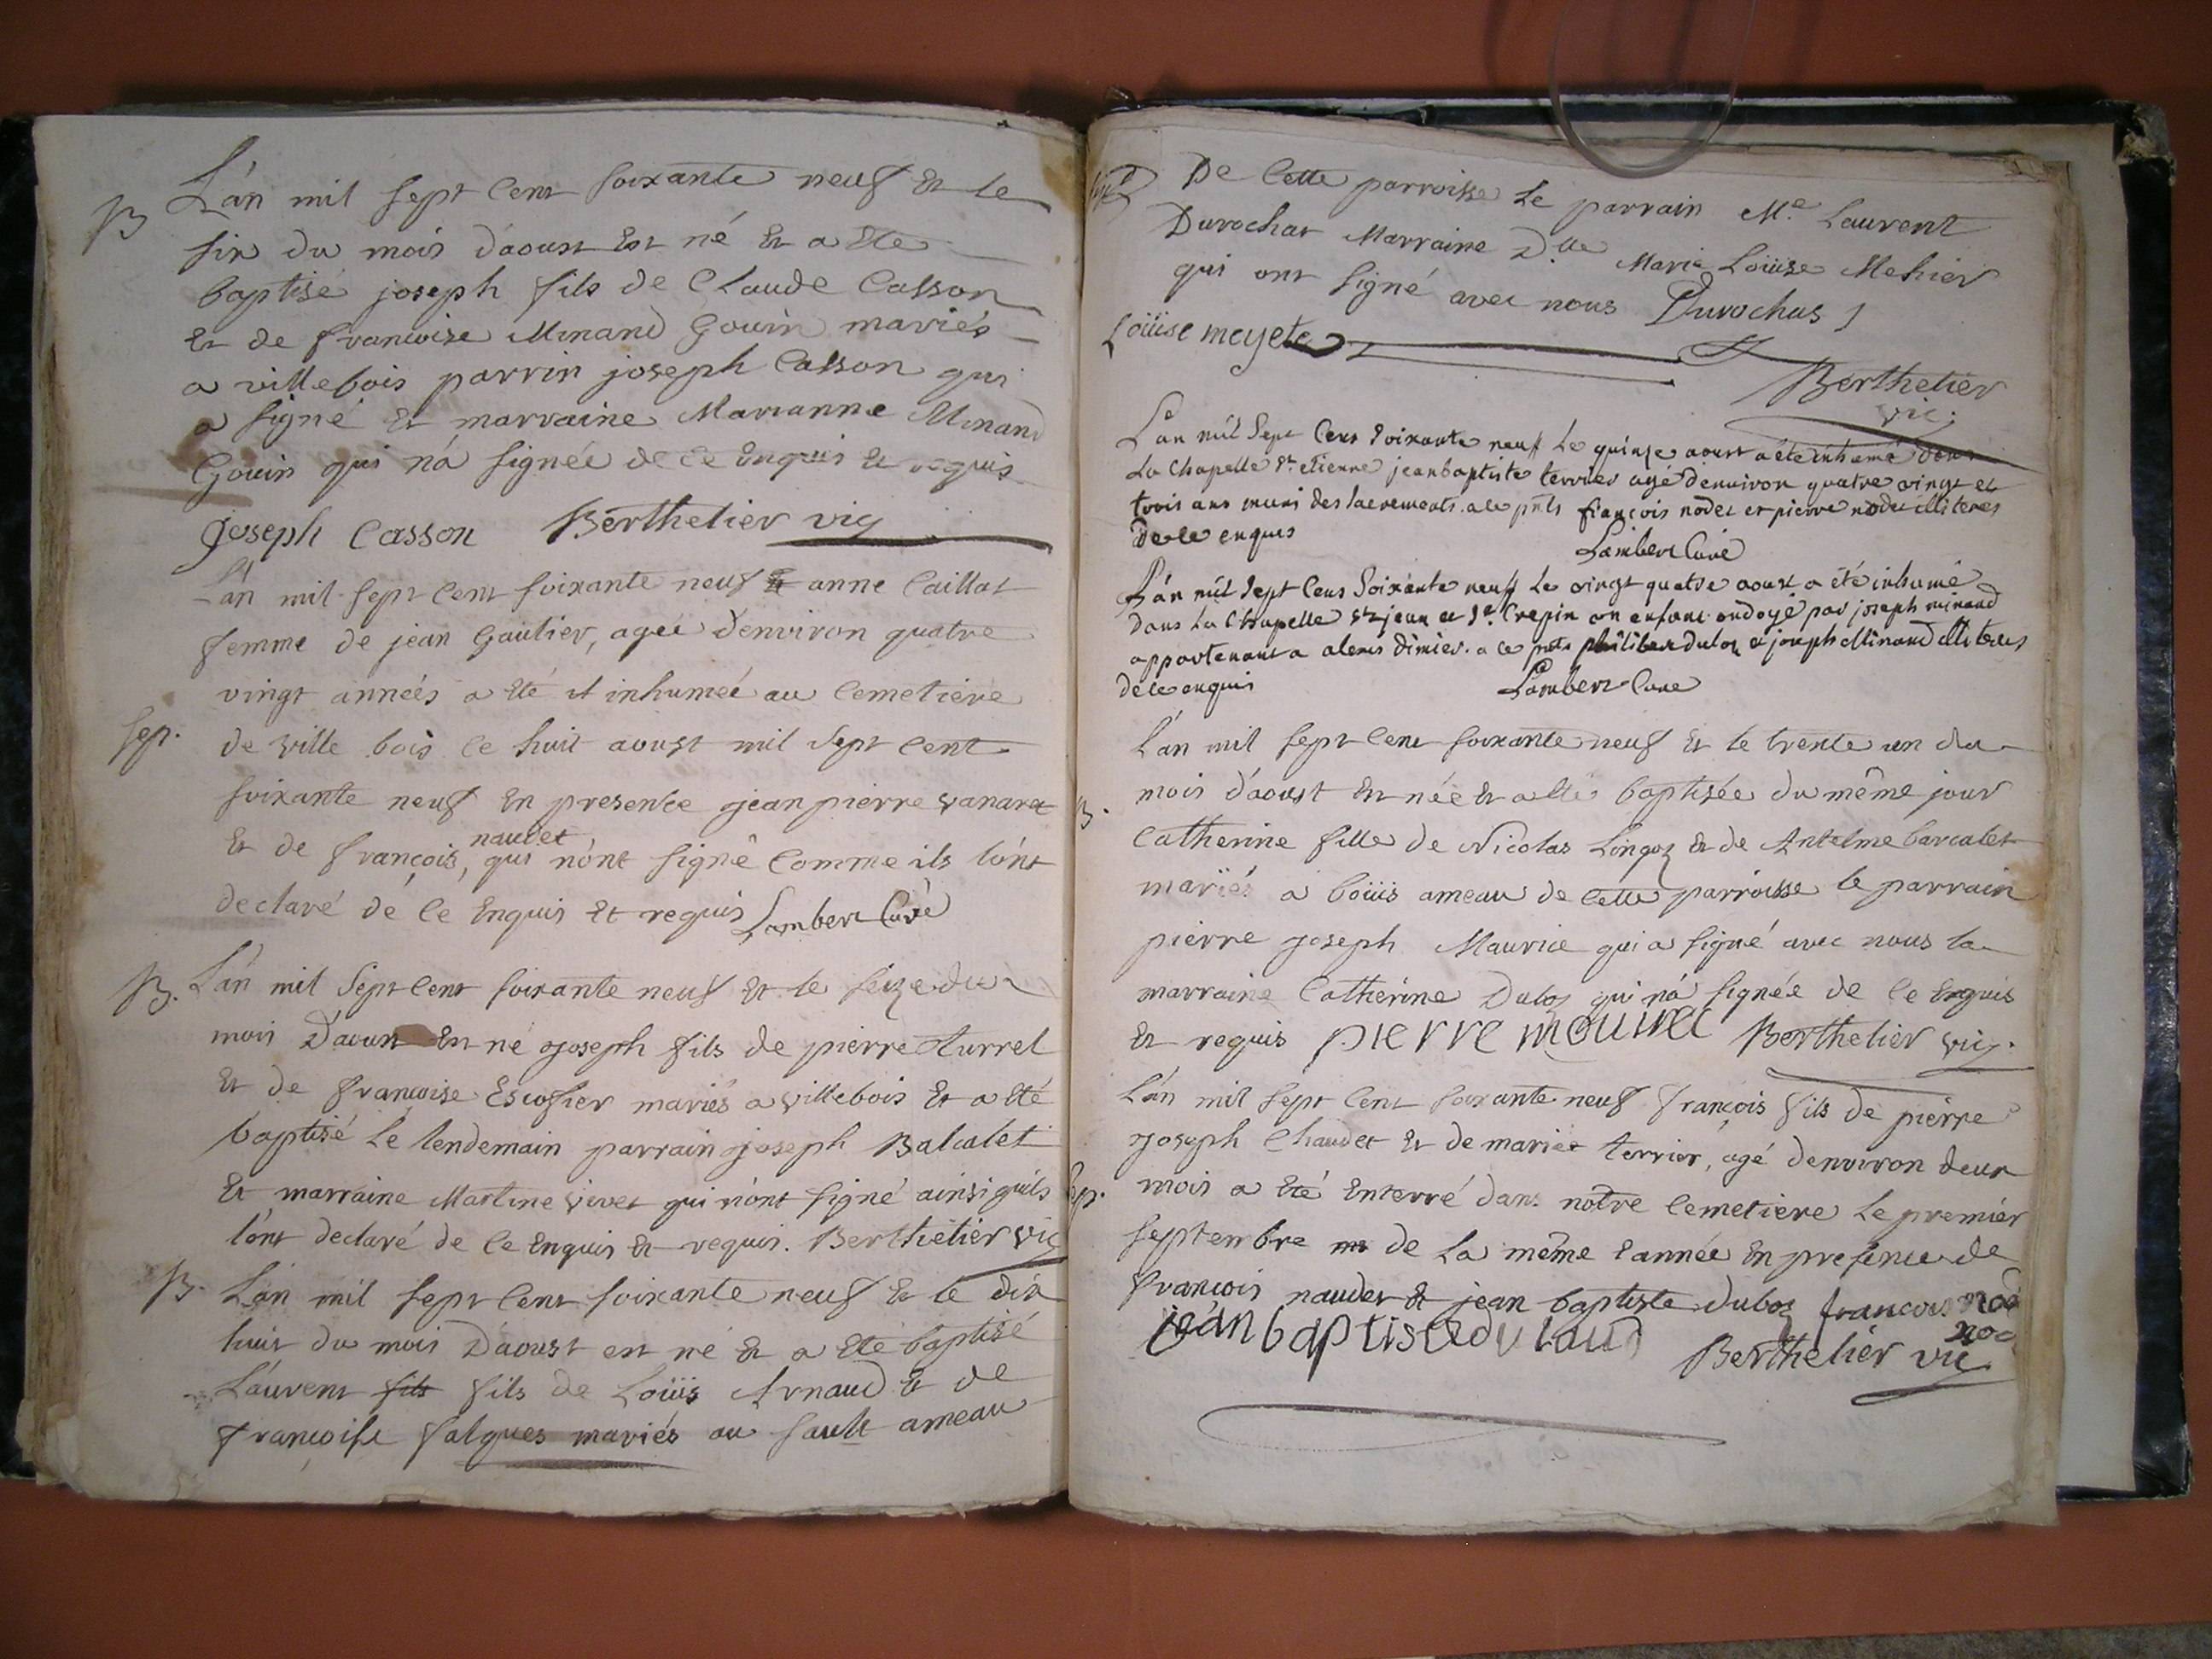 B
L'an mil sept cent soixante neuf et le
six du mois d'aoust est né et a ete
baptisé joseph fils de Claude Casson
et de francoise Minand Gouin mariés
a villebois parrin joseph Casson qui
a signé et marraine Marianne Minand
Gouin qui n'a signée de ce enquis et requis
joseph Casson Berthelier vic
L'an mil sept cent soixante neuf anne Caillat
femme de jean Gautier, ageé d'environ quatre
vingt années a eté inhumeé au Cemetiere
sep. de ville bois le huit aoust mil sept cent
soixante neuf en presence jean pierre vanaret
naudet
et de françois, qui n'ont signé Comme ils l'ont
declaré de ce enquis et requis Lambert Curé
B. L'an mil sept cent soixante neuf et le seize du
mois d'aoust est né joseph fils de pierre turrel
et de françoise Escofier mariés a villebois et a eté
baptisé le lendemain parrain joseph Balcalet
et marraine Martine vivet qui n'ont signé ainsi qu'ils
l'ont declaré de ce enquis et requis. Berthelier vic
B. L'an mil sept cent soixante neuf et le dix
huit du mois d'aoust est né et a eté baptisé
Laurent fils fils de Loüis Arnaud et de
françoise falques mariés au sault ameau
De Cette parroisse le parrain Me. Laurent
Durochat Marraine Dlle Marie Loüise Mehier
qui ont signé avec nous Durochat
Loüise meyete
Berthelier
vic.
L'an mil Sept Cens Soixante neuf le quinze aoust a été inhumé dans
la Chapelle st. etienne jeanbaptiste terrier agé d'environ quatre vingt et
trois ans muni des sacrements. a ce pnts françois nodet et pierre nodet illiteres
de ce enquis Lambert Curé
L'an mil Sept Cens Soixante neuf le vingt quatre aoust a été inhumé
dans la Chapelle st jean et st. Crepin un enfant ondoyé par joseph minand
appartenant a alexis dimier. a ce pnts philibert duloz et joseph Minand illiteres
de ce enquis Lambert Curé
L'an mil sept cent soixante neuf et le trente un du
mois d'aoust est née et a eté baptisée du même jour
B. Catherine fille de Nicolas Longoz et de Antelme barcalet
mariés a boüis ameau de cette parroisse le parrain
pierre joseph Maurice qui a signé avec nous la
marraine Catherine Duloz qui n'a signée de ce enquis
et requis pierre mourice Berthelier vic.
L'an mil sept cent soixante neuf françois fils de pierre
joseph Chaudet et de mariee terrier, agé d'environ deux
sep. mois a eté enterré dans notre Cemetiere le premier
septembre de la même année en presence de
francois naudet et jean baptiste duloz francois nod
jean baptiste du laus
Berthelier vic